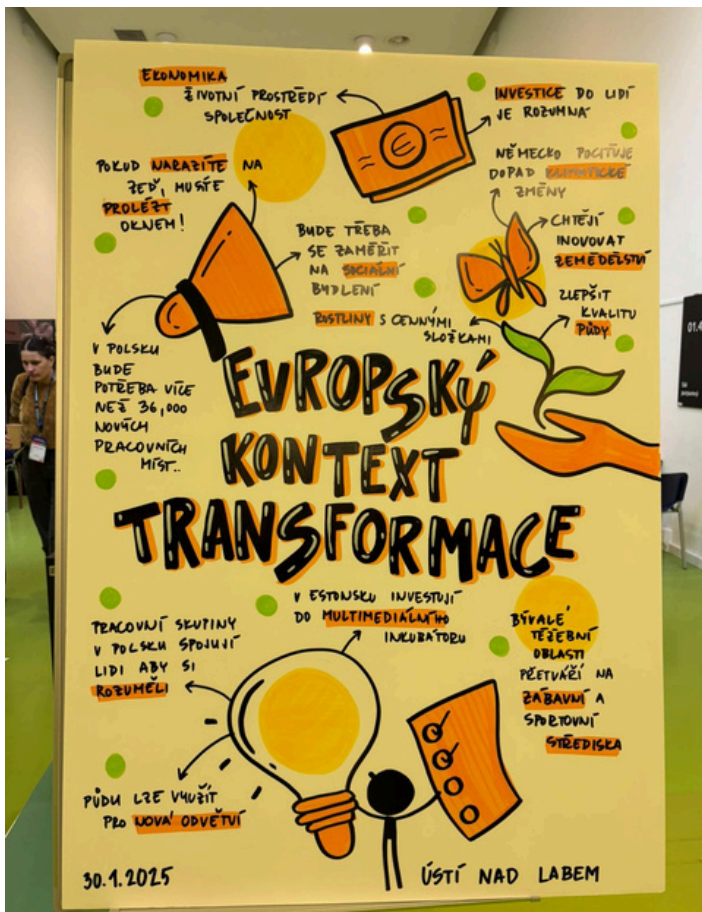 EKONOMIKA
ŽIVOTNÍ PROSTŘEDÍ
SPOLEČNOST
INVESTICE DO LIDÍ
JE ROZUMNÁ
POKUD NARAZÍTE NA
ZEĎ, MUSÍTE
PROLÉZT
OKNEM!
NĚMECKO POCIŤUJE
DOPAD KLIMATICKÉ
ZMĚNY
CHTĚJÍ
INOVOVAT
ZEMĚDĚLSTVÍ
BUDE TŘEBA
SE ZAMĚŘIT
NA SOCIÁLNÍ
BYDLENÍ
ROSTLINY S CENNÝMI
SLOŽKAMI
ZLEPŠIT
KVALITU
PŮDY
V POLSKU
BUDE
POTŘEBA VÍCE
NEŽ 36,000
NOVÝCH
PRACOVNÍCH
MÍST..
EVROPSKÝ
KONTEXT
TRANSFORMACE
PRACOVNÍ SKUPINY
V POLSKU SPOJUJÍ
LIDI ABY SI
ROZUMĚLI
V ESTONSKU INVESTUJÍ
DO MULTIMEDIÁLNÍHO
INKUBÁTORU
BÝVALÉ
TĚŽEBNÍ
OBLASTI
PŘETVÁŘÍ NA
ZÁBAVNÍ A
SPORTOVNÍ
STŘEDISKA
PŮDU LZE VYUŽÍT
PRO NOVÁ ODVĚTVÍ
30.1.2025
ÚSTÍ NAD LABEM